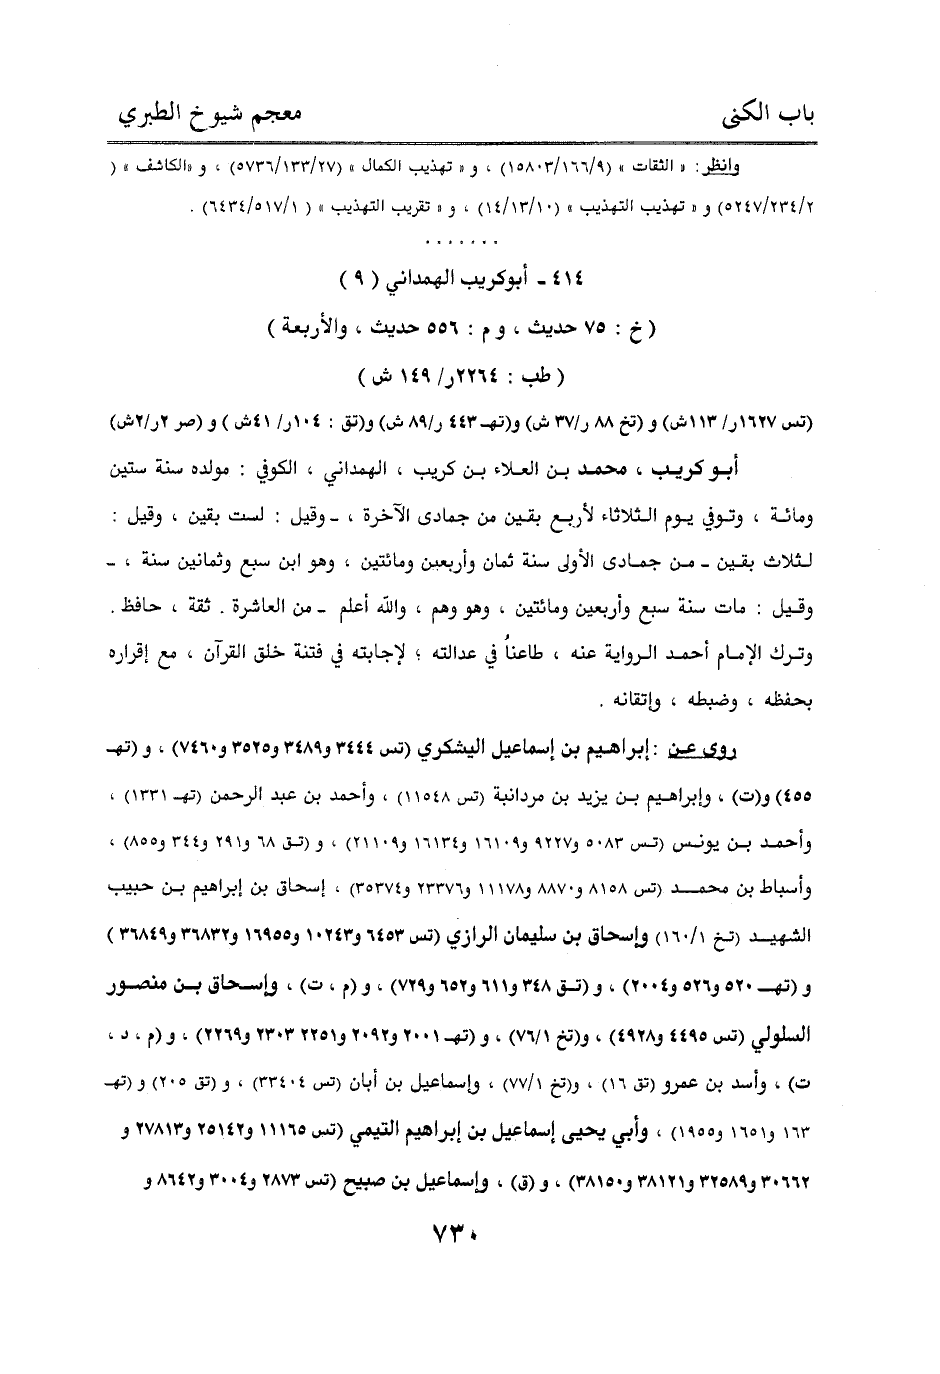 باب الكنى
معجم شيوخ الطبري
وانظر : « الثقات » (١٥٨٠٣/١٦٦/٩) ، و « تهذيب الكمال » (٥٧٣٦/١٣٣/٢٧) ، و «الكاشف » (
٥٢٤٧/٢٣٤/٢) و « تهذيب التهذيب » (١٤/١٣/١٠) ، و « تقريب التهذيب » ( ٦٤٣٤/٥١٧/١) .
. . . . . . .
٤١٤ - أبوكريب الهمداني ( ٩ )
( خ : ٧٥ حديث ، و م : ٥٥٦ حديث ، والأربعة )
( طب : ٢٢٦٤ر/ ١٤٩ ش )
(تس ١٦٢٧ر/ ١١٣ش) و (تخ ٨٨ ر/٣٧ ش) و(تهـ ٤٤٣ ر/٨٩ ش) و(تق : ١٠٤ر/ ٤١ش ) و (صر ٢ر/٢ش)
أبو كريب ، محمد بن العلاء بن كريب ، الهمداني ، الكوفي : مولده سنة ستين
ومائة ، وتوفي يوم الثلاثاء لأربع بقين من جمادى الآخرة ، ـ وقيل : لست بقين ، وقيل :
لثلاث بقين ـ من جمادى الأولى سنة ثمان وأربعين ومائتين ، وهو ابن سبع وثمانين سنة ، ـ
وقيل : مات سنة سبع وأربعين ومائتين ، وهو وهم ، والله أعلم ـ من العاشرة . ثقة ، حافظ .
وترك الإمام أحمد الرواية عنه ، طاعناً في عدالته ؛ لإجابته في فتنة خلق القرآن ، مع إقراره
بحفظه ، وضبطه ، وإتقانه .
روى عن : إبراهيم بن إسماعيل اليشكري (تس ٣٤٤٤ و٣٤٨٩ و٣٥٢٥ و٧٤٦٠) ، و (تهـ
٤٥٥) و(ت) ، وإبراهيم بن يزيد بن مردانبة (تس ١١٥٤٨) ، وأحمد بن عبد الرحمن (تهـ ١٣٣١) ،
وأحمد بن يونس (تس ٥٠٨٣ و٩٢٢٧ و١٦١٠٩ و١٦١٣٤ و٢١١٠٩) ، و (تق ٦٨ و٢٩١ و٣٤٤ و٨٥٥) ،
وأسباط بن محمد (تس ٨١٥٨ و٨٨٧٠ و١١١٧٨ و٢٣٣٧٦ و٣٥٣٧٤) ، إسحاق بن إبراهيم بن حبيب
الشهيد (تخ ١٦٠/١) وإسحاق بن سليمان الرازي (تس ٦٤٥٣ و١٠٢٤٣ و١٦٩٥٥ و٣٦٨٣٢ و٣٦٨٤٩ )
و (تهـ ٥٢٠ و٥٢٦ و٢٠٠٤) ، و (تق ٣٤٨ و٦١١ و٦٥٢ و٧٢٩) ، و (م ، ت) ، وإسحاق بن منصور
السلولي (تس ٤٤٩٥ و٤٩٢٨) ، و(تخ ٧٦/١) ، و (تهـ ٢٠٠١ و٢٠٩٢ و٢٢٥١ ٢٣٠٣ و٢٢٦٩) ، و (م ، د ،
ت) ، وأسد بن عمرو (تق ١٦) ، و(تخ ٧٧/١) ، وإسماعيل بن أبان (تس ٣٣٤٠٤) ، و (تق ٢٠٥) و (تهـ
١٦٣ و١٦٥١ و١٩٥٥) ، وأبي يحيى إسماعيل بن إبراهيم التيمي (تس ١١١٦٥ و٢٥١٤٢ و٢٧٨١٣ و
٣٠٦٦٢ و٣٢٥٨٩ و٣٨١٢١ و٣٨١٥٠) ، و (ق) ، وإسماعيل بن صبيح (تس ٢٨٧٣ و٣٠٠٤ و٨٦٤٢ و
٧٣٠